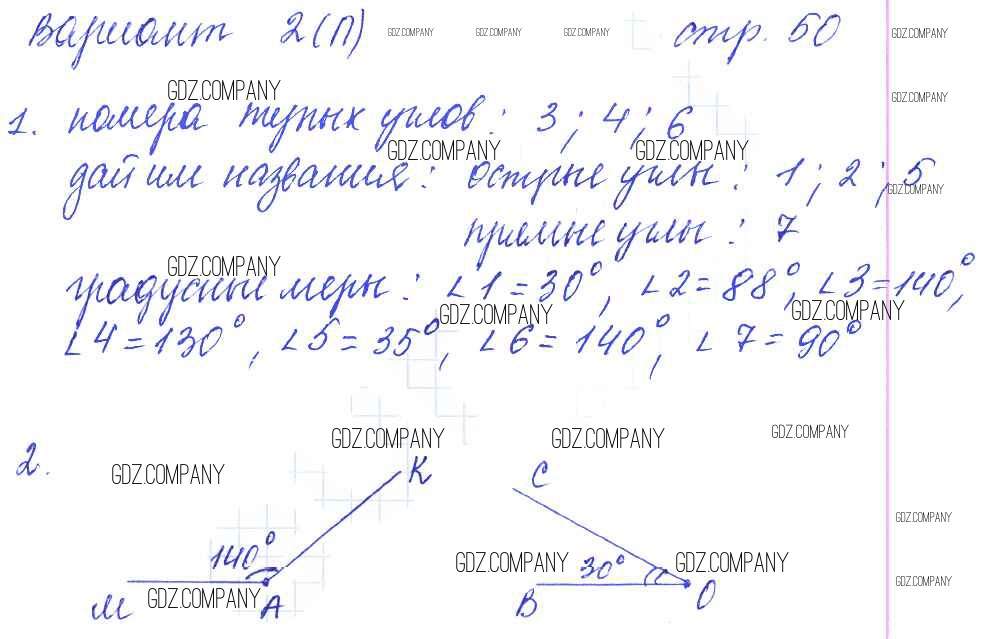 Вариант 2(П) стр. 50
GDZ.COMPANY GDZ.COMPANY GDZ.COMPANY GDZ.COMPANY
GDZ.COMPANY GDZ.COMPANY
1. номера тупых углов: 3; 4; 6
GDZ.COMPANY GDZ.COMPANY
дай им названия: острые углы: 1; 2; 5
GDZ.COMPANY
прямые углы: 7
GDZ.COMPANY
градусные меры: ∠1=30°, ∠2=88°, ∠3=140°,
GDZ.COMPANY GDZ.COMPANY
∠4=130°, ∠5=35°, ∠6=140°, ∠7=90°
GDZ.COMPANY GDZ.COMPANY GDZ.COMPANY
2.
GDZ.COMPANY К С
GDZ.COMPANY
140° GDZ.COMPANY 30° GDZ.COMPANY
GDZ.COMPANY
М GDZ.COMPANY А В О